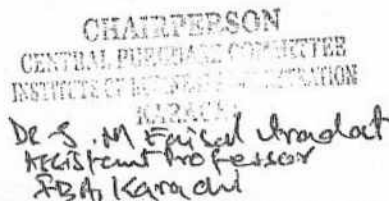 CHAIRPERSON
CENTRAL PURCHASE COMMITTEE
INSTITUTE OF BUSINESS ADMINISTRATION
KARACHI
Dr S. M Faisal Iradat
Assistant Professor
IBA, Karachi